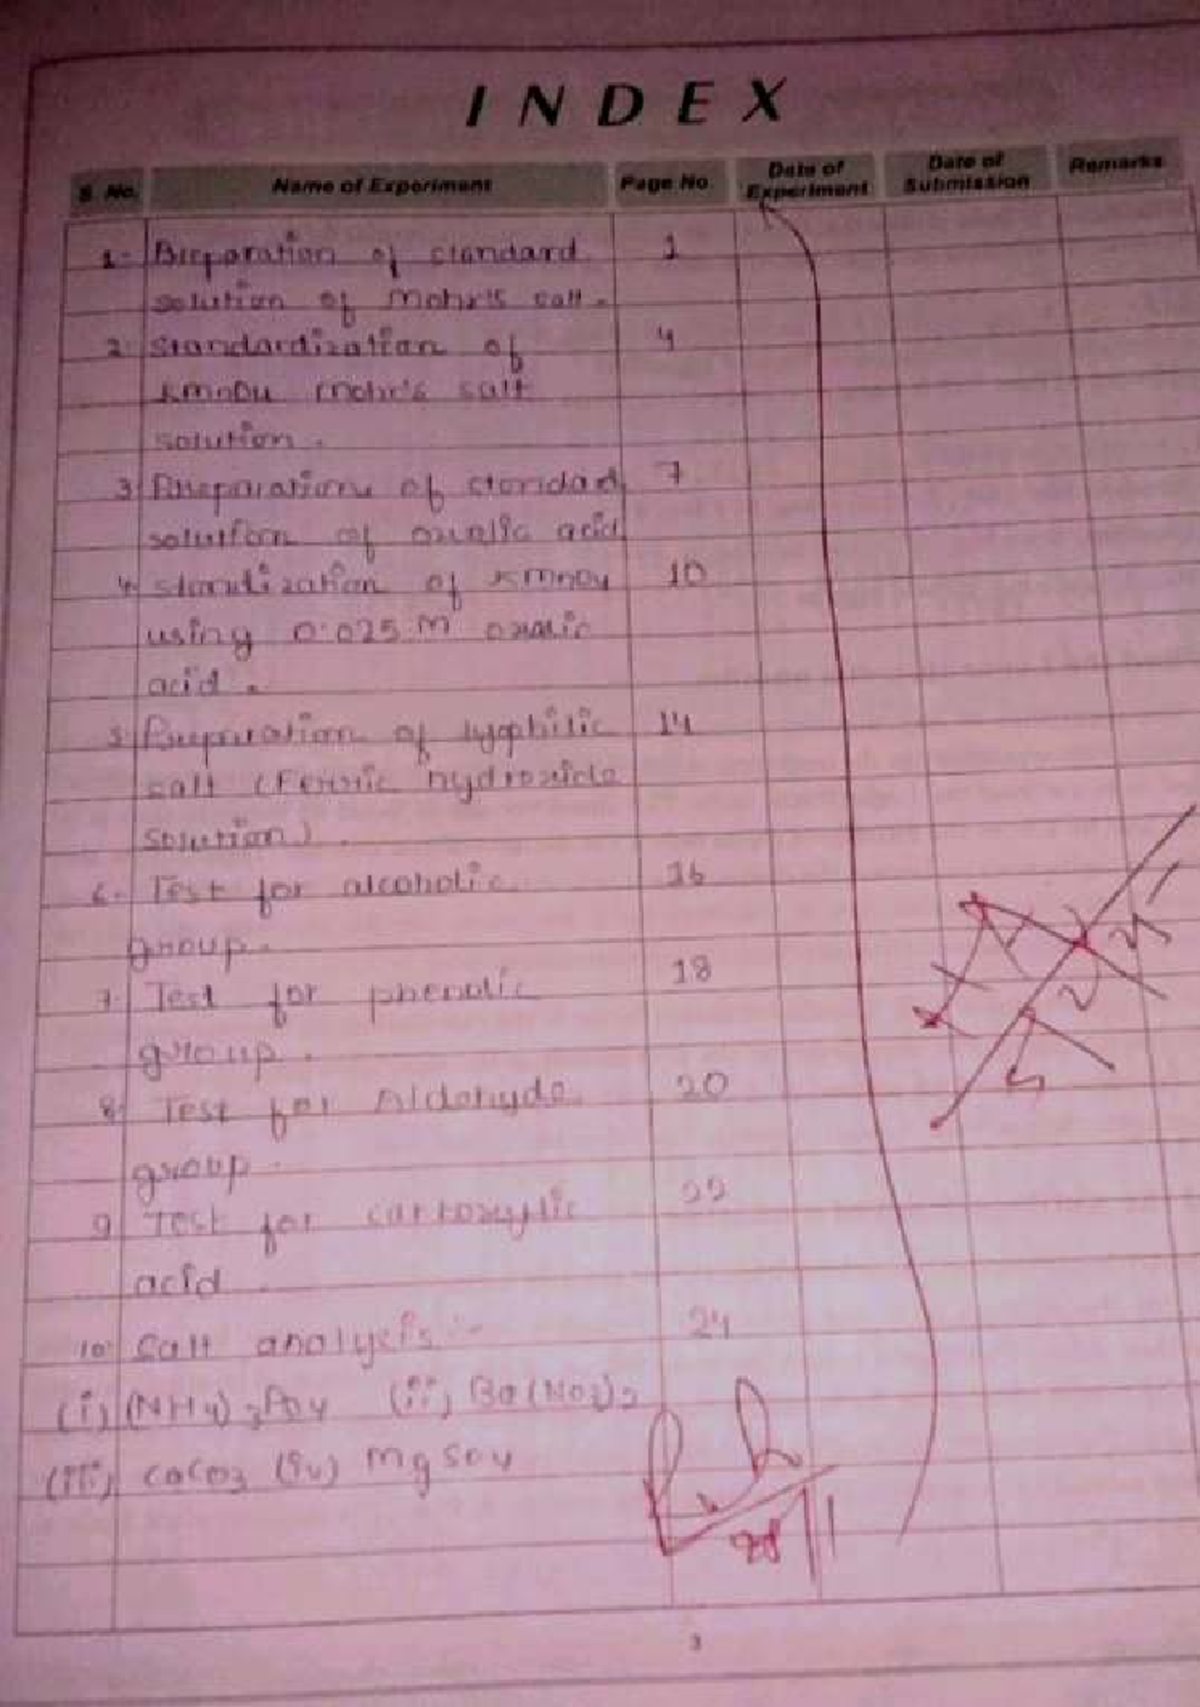 INDEX
S. No. Name of Experiment Page No. Date of Experiment Date of Submission Remarks
1. Preparation of standard 1
solution of Mohr's salt.
2. Standardization of 4
KMnO4 Mohr's salt
solution.
3. Preparations of standad 7
solution of oxalic acid
4. standization of KMnO4 10
using 0.025 M oxalic
acid.
5. Preparation of lyophilic 14
salt (Ferric hydroxide
solution).
6. Test for alcoholic 16
group.
7. Test for phenolic 18
group.
8. Test for Aldehyde 20
group.
9. Test for carboxylic 22
acid.
10. Salt analysis :- 24
(i) (NH4)3PO4 (ii) Ba(NO3)2
(iii) CaCO3 (iv) MgSO4
3